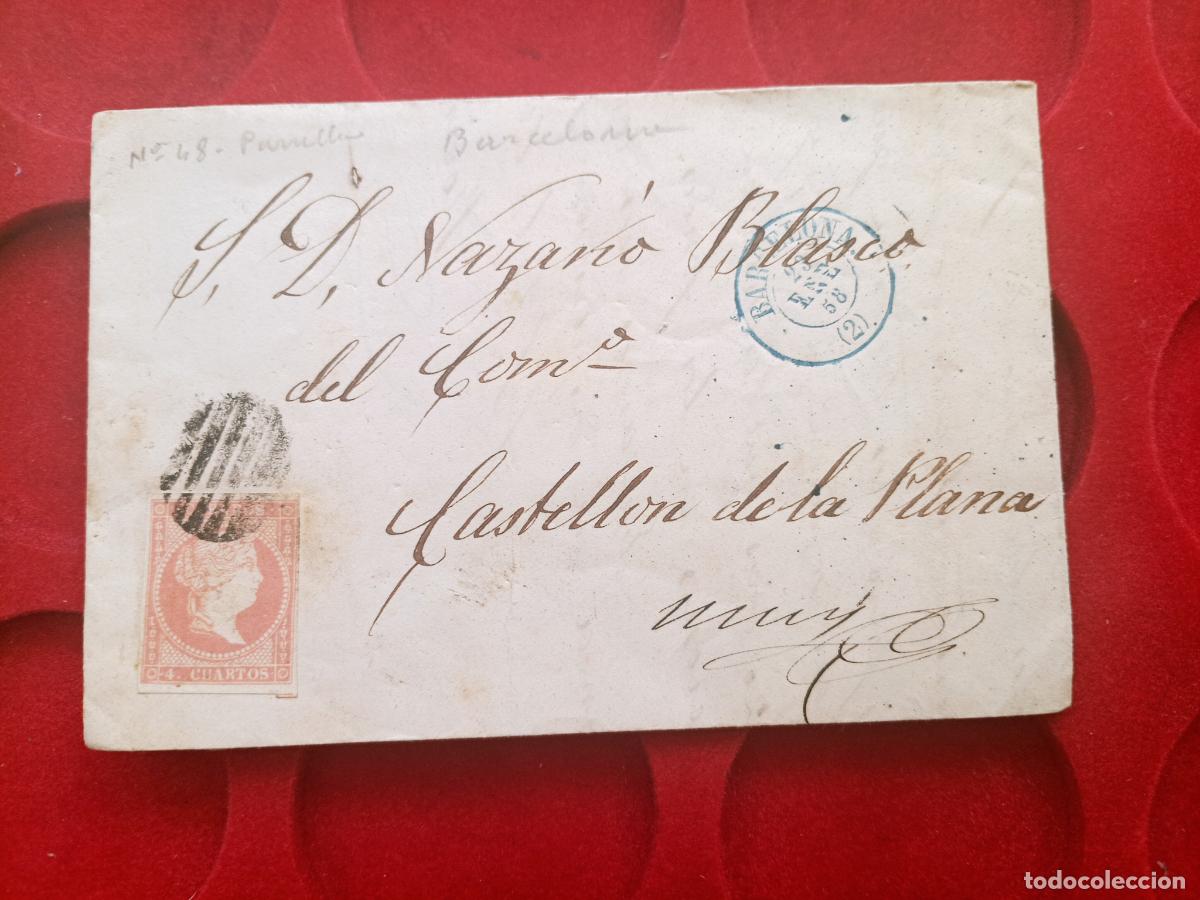 Nº 48 - Parrilla Barcelona
S. D. Nazario Blasco
BARCELONA
58
(2)
del Comº
Castellon de la Plana
muy
4. CUARTOS
todocoleccion